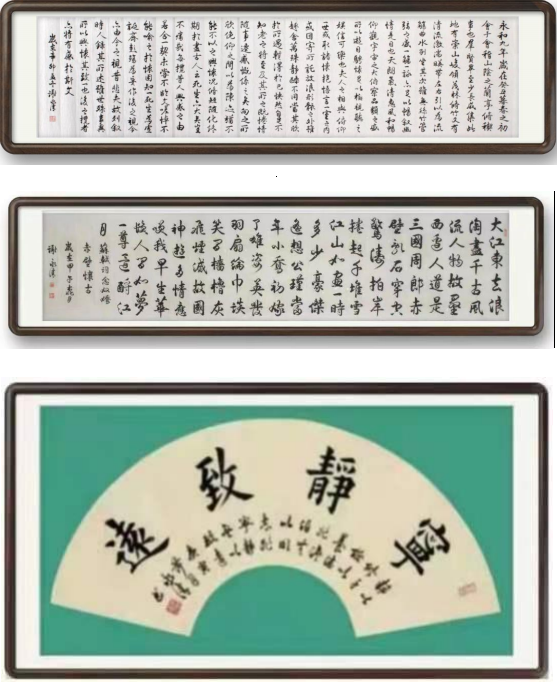 永和九年歲在癸丑暮春之初
會于會稽山陰之蘭亭脩禊
事也群賢畢至少長咸集此
地有崇山峻領茂林脩竹又有
清流激湍暎帶左右引以為流
觴曲水列坐其次雖無絲竹管
弦之盛一觴一詠亦足以暢敘幽
情是日也天朗氣清惠風和暢
仰觀宇宙之大俯察品類之盛
所以遊目騁懷足以極視聽之
娛信可樂也夫人之相與俯仰
一世或取諸懷抱悟言一室之內
或因寄所託放浪形骸之外雖
趣舍萬殊靜躁不同當其欣
於所遇暫得於己快然自足不
知老之將至及其所之既惓情
隨事遷感慨係之矣向之所
欣俛仰之間以為陳迹猶不
能不以之興懷況脩短隨化終
期於盡古人云死生亦大矣豈
不痛哉每攬昔人興感之由
若合一契未嘗不臨文嗟悼不
能喻之於懷固知一死生為虛
誕齊彭殤為妄作後之視今
亦由今之視昔悲夫故列敘
時人錄其所述雖世殊事異
所以興懷其致一也後之攬者
亦將有感於斯文
大江東去浪
淘盡千古風
流人物故壘
西邊人道是
三國周郎赤
壁亂石穿空
驚濤拍岸
捲起千堆雪
江山如畫一時
多少豪傑
遙想公瑾當
年小喬初嫁
了雄姿英發
羽扇綸巾談
笑間檣櫓灰
飛煙滅故國
神遊多情應
笑我早生華
髮人間如夢
一尊還酹江
月 蘇軾詞念奴嬌
赤壁懷古
歲在甲午
寧靜致遠